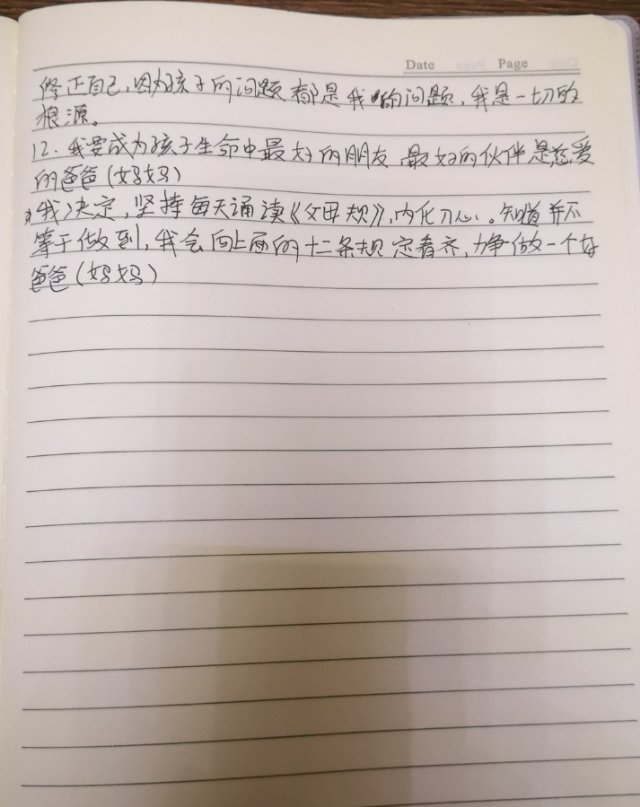 Date Page
修正自己,因为孩子的问题都是我的问题,我是一切的
根源。
12.我要成为孩子生命中最好的朋友 最好的伙伴是慈爱
的爸爸(妈妈)
我决定,坚持每天诵读《父母规》,内化于心。知道并不
等于做到,我会向上面的十二条规定看齐,争做一个好
爸爸(妈妈)